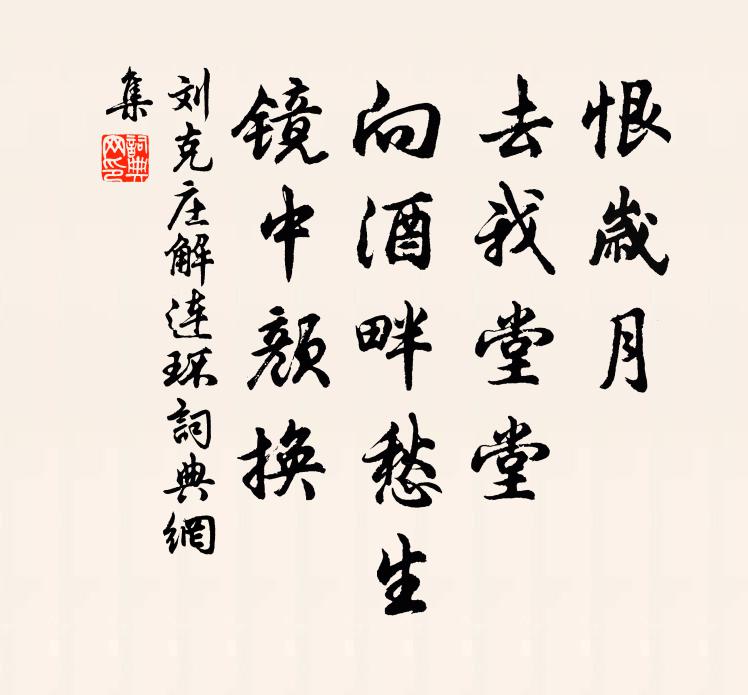 恨岁月
去我堂堂
向酒畔愁生
镜中颜换
刘克庄解连环詞典網
集
詞典
网印